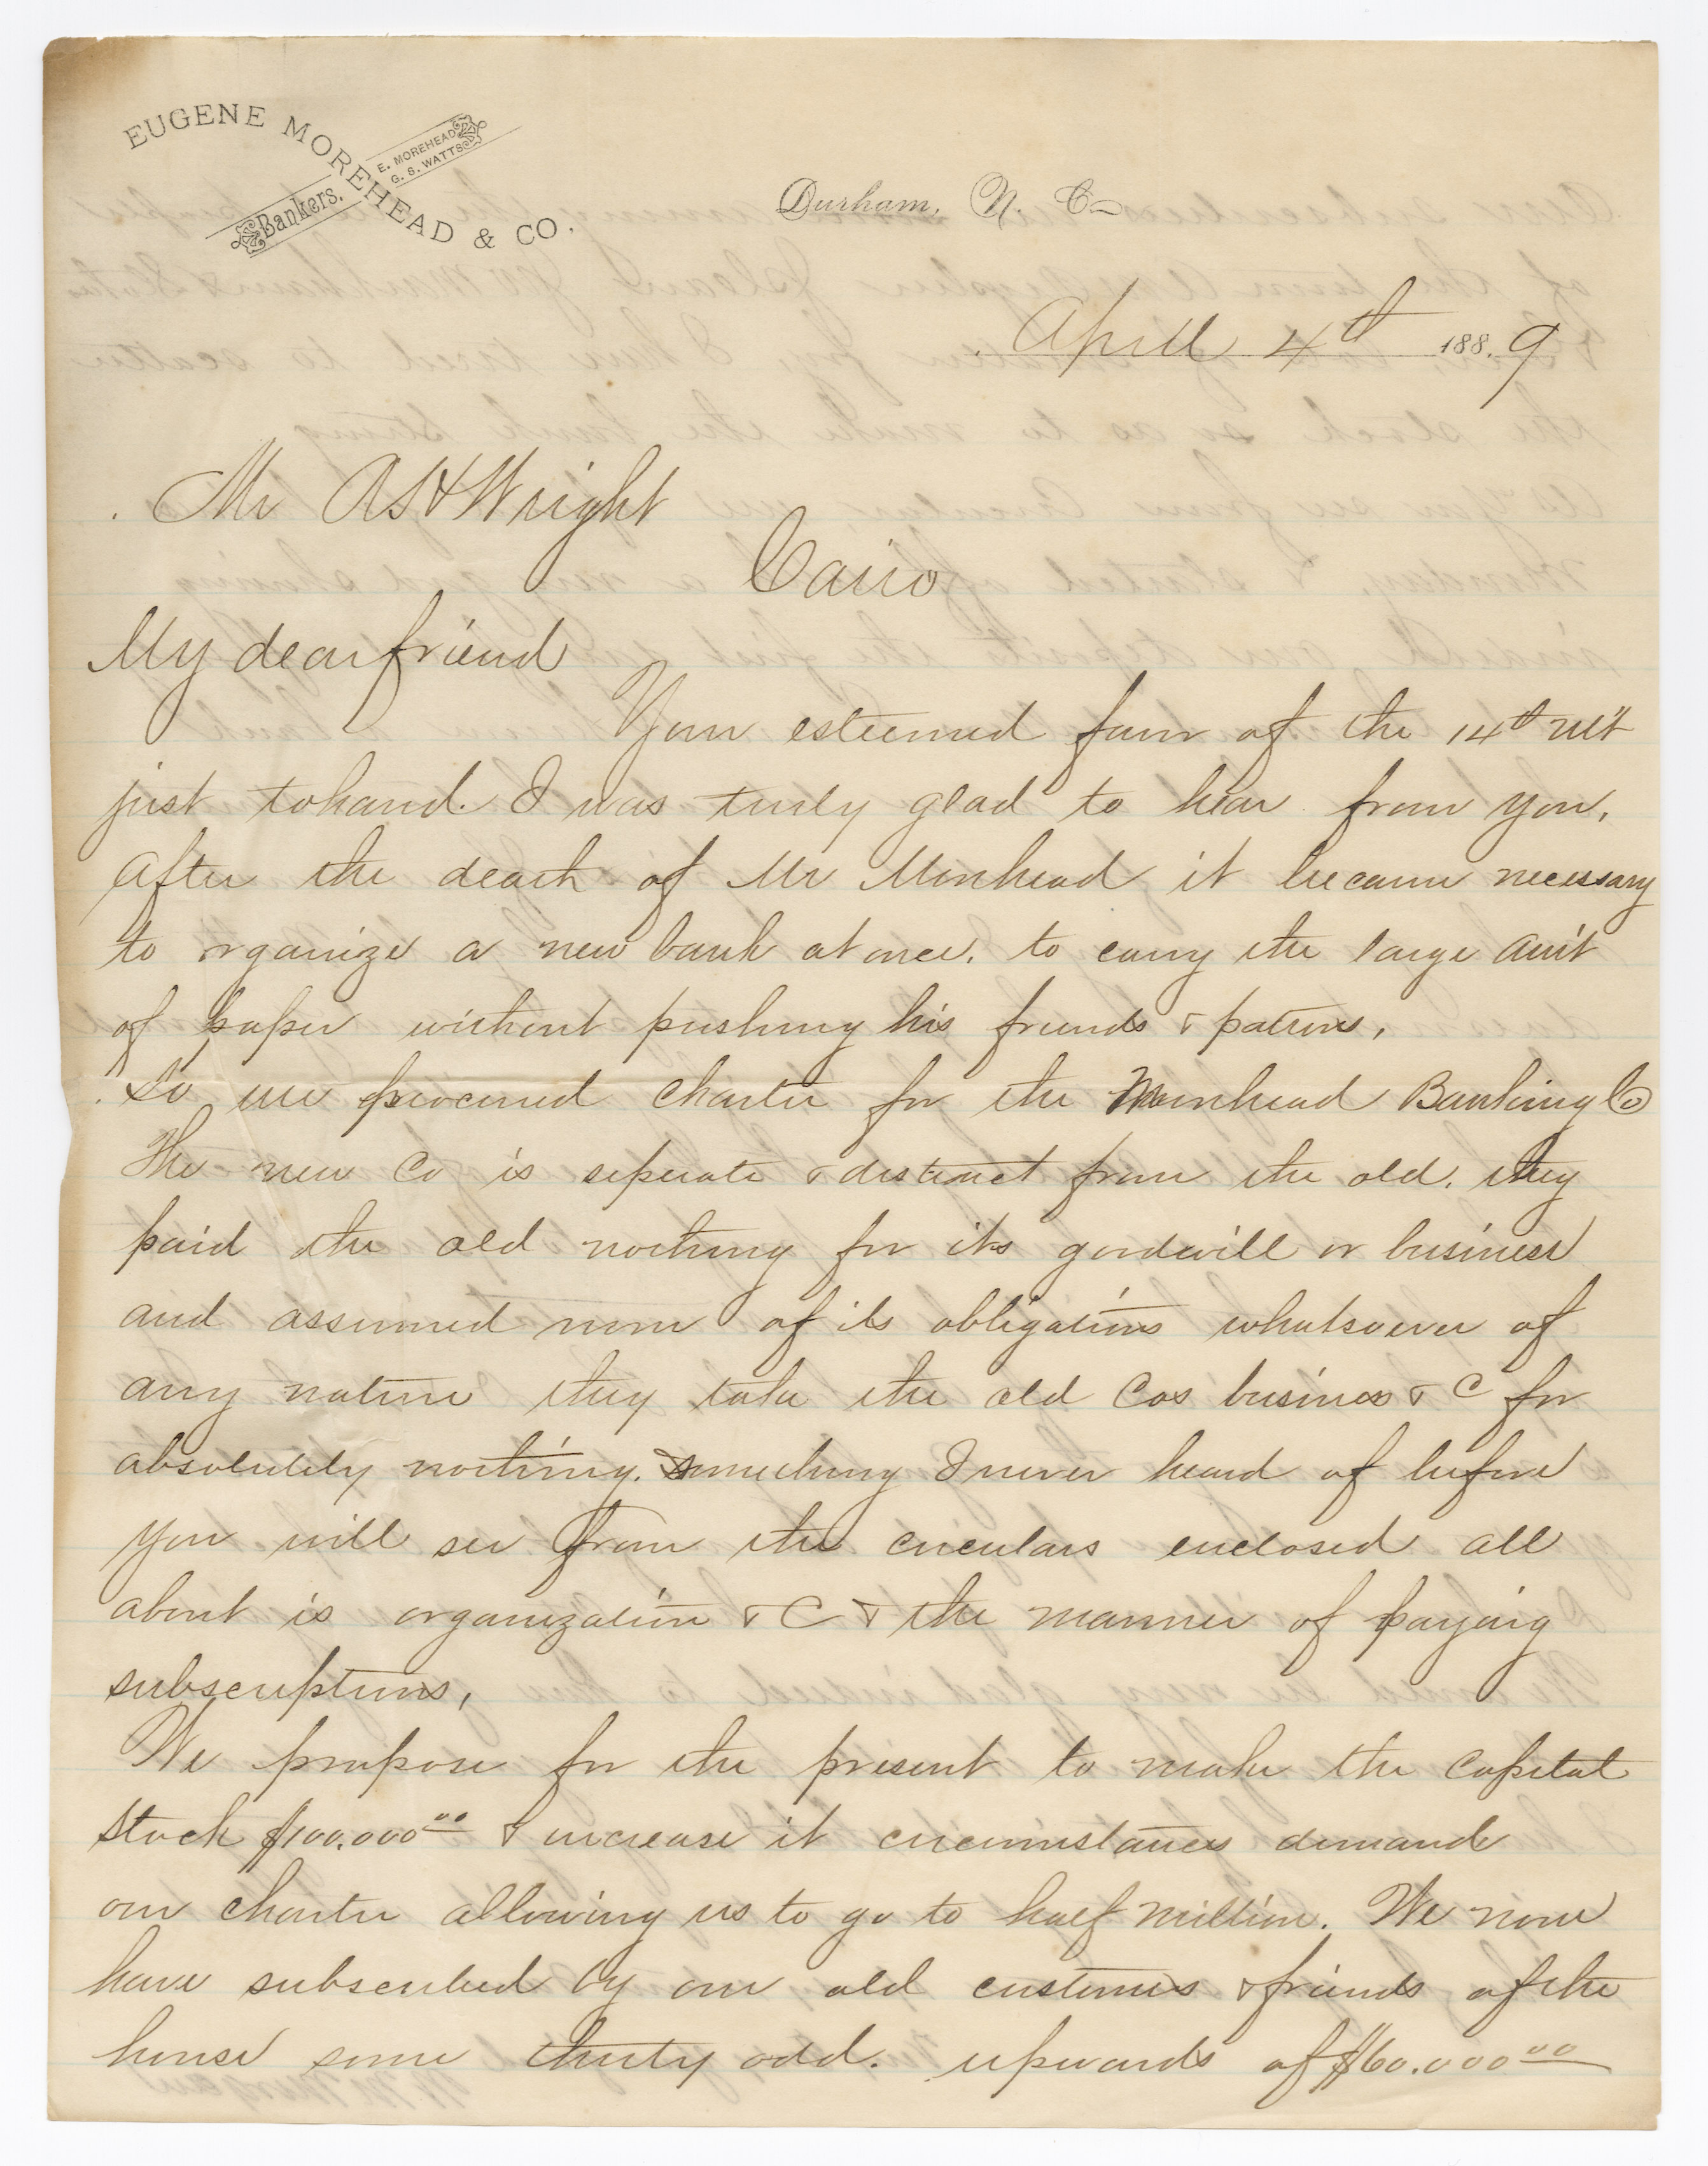 EUGENE MOREHEAD & CO.
Bankers.
E. MOREHEAD
G. S. WATTS
Durham, N. C.
April 4th 1889
Mr Wright
Cairo
My dear friend
Your esteemed favor of the 14th ult
just to hand. I was truly glad to hear from you.
After the death of Mr Morehead it became necessary
to organize a new bank at once. to carry the large am't
of paper without pushing his friends & patrons.
So we procured charter for the Morehead Banking Co
The new Co is seperate & distinct from the old. they
paid the old nothing for its goodwill or business
and assumed none of its obligations whatsoever of
any nature they take the old Cos business & C for
absolutely nothing. Something I never heard of before
You will see from the circulars enclosed all
about is organization & C & the manner of paying
subscriptions,
We propose for the present to make the Capital
Stock $100.000 00 & increase it circumstances demand
our charter allowing us to go to half million. We now
have subscribed by our old customers & friends of the
house some thirty odd. upwards of $60.000 00